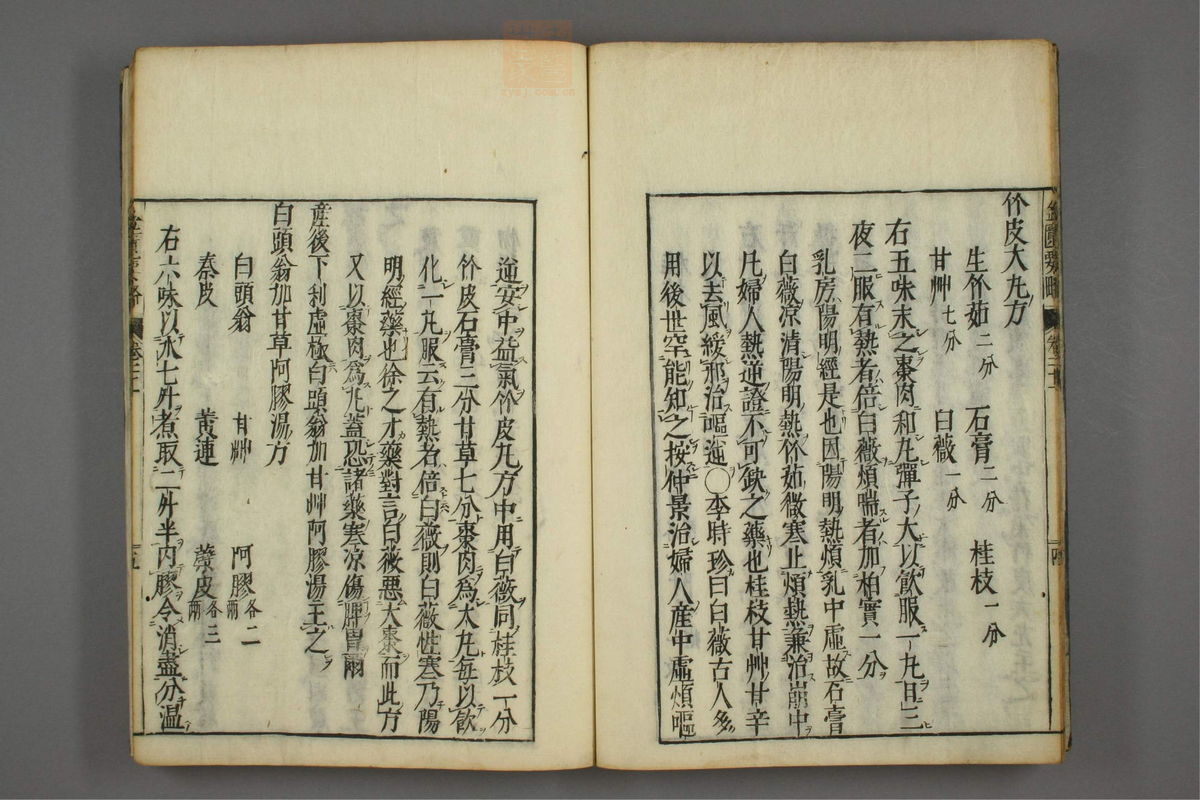 竹皮大丸方
生竹茹二分 石膏二分 桂枝一分
甘艸七分 白薇一分
右五味末之棗肉和丸彈子大以飲服一丸日三
夜二服有熱者倍白薇煩喘者加柏實一分
乳房陽明經是也因陽明熱煩乳中虛故石膏
白薇凉清陽明熱竹茹微寒止煩熱兼治崩中
凡婦人熱逆證不可缺之藥也桂枝甘艸甘辛
以去風緩邪治嘔逆〇李時珍曰白薇古人多
用後世罕能知之按仲景治婦人産中虛煩嘔
金匱要略 卷二十一
逆安中益氣竹皮丸方中用白薇同桂枝一分
竹皮石膏三分甘草七分棗肉爲大丸每以飲
化一丸服云有熱者倍白薇則白薇性寒乃陽
明經藥也徐之才藥對言白薇惡大棗而此方
又以棗肉爲丸蓋恐諸藥寒凉傷脾胃爾
産後下利虛極白頭翁加甘艸阿膠湯主之
白頭翁加甘草阿膠湯方
白頭翁 甘艸 阿膠各二兩
秦皮 黄連 蘗皮各三兩
右六味以水七升煮取二升半內膠令消盡分温
zysj.com.cn